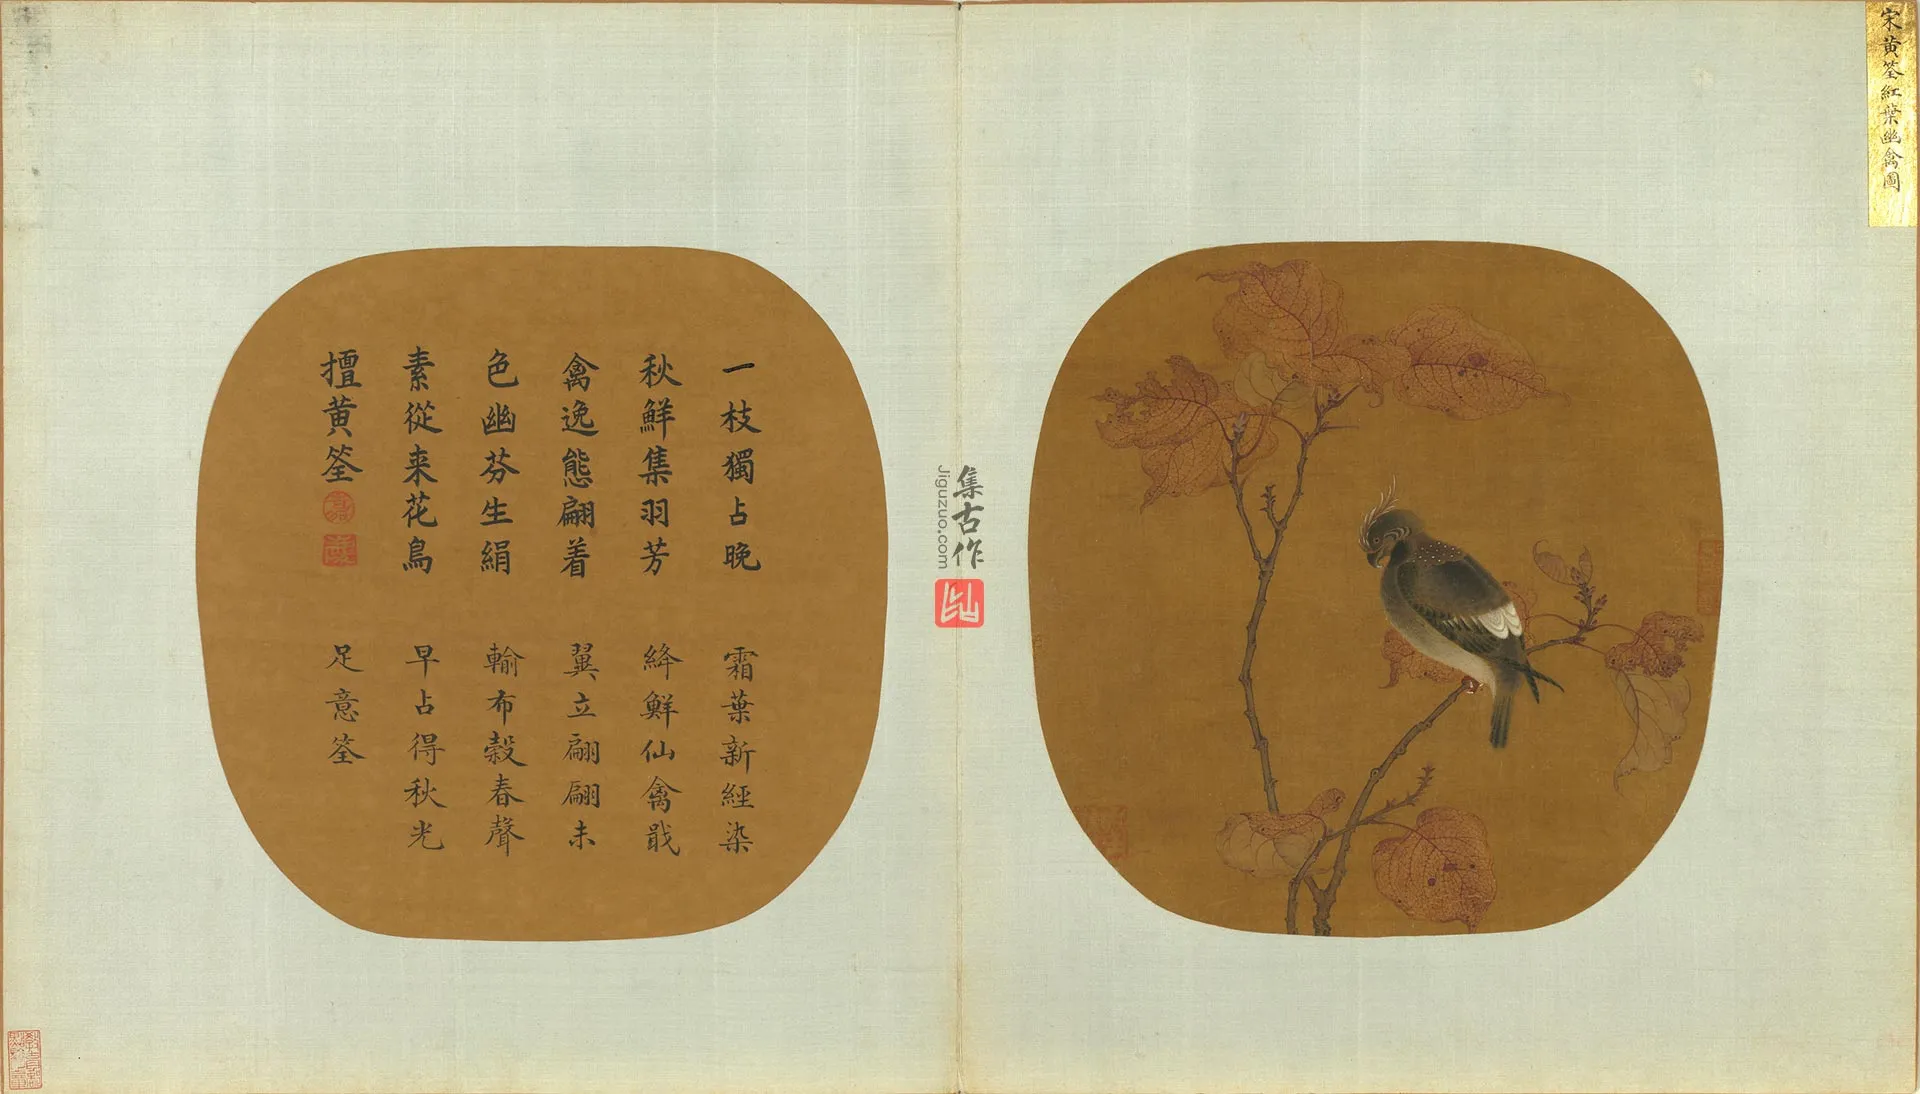 宋黄筌紅葉幽禽圖
集古作
Jiguzuo.com
一枝獨占晚
秋鮮集羽芳
禽逸態翩着
色幽芬生絹
素從来花鳥
擅黄筌
霜葉新經染
絳鮮仙禽戢
翼立翩翩未
輸布穀春聲
早占得秋光
足意筌